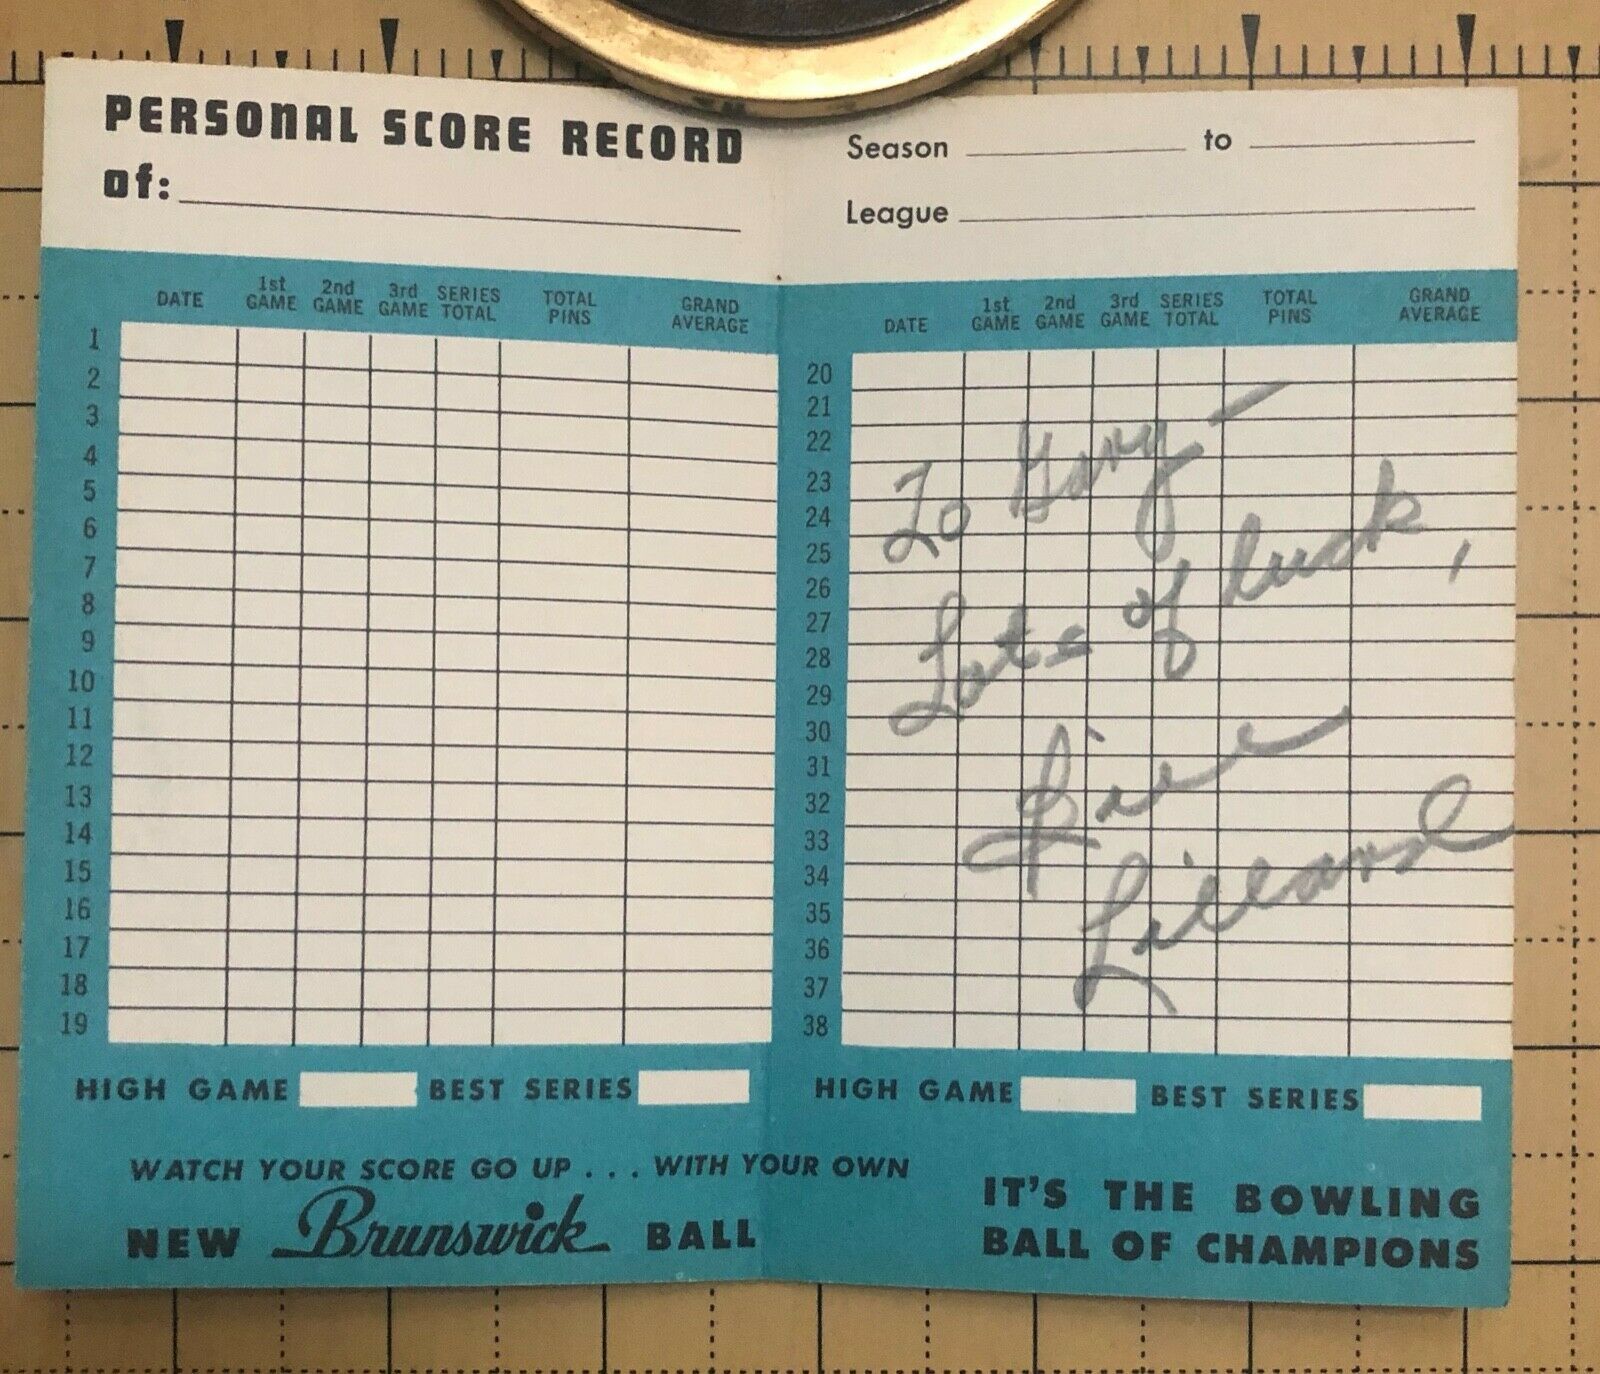 PERSONAL SCORE RECORD
of:
DATE 1st GAME 2nd GAME 3rd GAME SERIES TOTAL TOTAL PINS GRAND AVERAGE
1
2
3
4
5
6
7
8
9
10
11
12
13
14
15
16
17
18
19
HIGH GAME BEST SERIES
Season to
League
DATE 1st GAME 2nd GAME 3rd GAME SERIES TOTAL TOTAL PINS GRAND AVERAGE
20
21
22
23
24
25
26
27
28
29
30
31
32
33
34
35
36
37
38
To Gary –
Lots of luck,
Bill
Lillard
HIGH GAME BEST SERIES
WATCH YOUR SCORE GO UP . . . WITH YOUR OWN
NEW Brunswick BALL
IT'S THE BOWLING
BALL OF CHAMPIONS